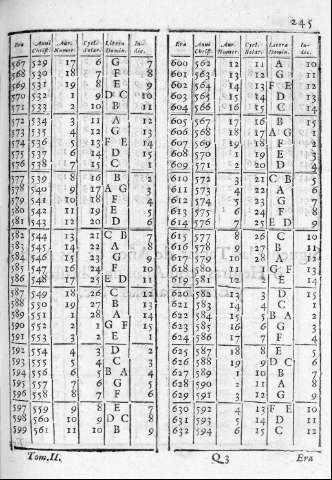 245
Era Anni Christ. Aur. Numer. Cycl. Solar. Litera Domin. In-dic.
567 529 17 6 G 7
568 530 18 7 F 8
569 531 19 8 E 9
570 532 1 9 D C 10
571 533 2 10 B 11
572 534 3 11 A 12
573 535 4 12 G 13
574 536 5 13 F E 14
575 537 6 14 D 15
576 538 7 15 C 1
577 539 8 16 B 2
578 540 9 17 A G 3
579 541 10 18 F 4
580 542 11 19 E 5
581 543 12 20 D 6
582 544 13 21 C B 7
583 545 14 22 A 8
584 546 15 23 G 9
585 547 16 24 F 10
586 548 17 25 E D 11
587 549 18 26 C 12
588 550 19 27 B 13
589 551 1 28 A 14
590 552 2 1 G F 15
591 553 3 2 E 1
592 554 4 3 D 2
593 555 5 4 C 3
594 556 6 5 B A 4
595 557 7 6 G 5
596 558 8 7 F 6
597 559 9 8 E 7
598 560 10 9 D C 8
599 561 11 10 B 9
Era Anni Christ. Aur. Numer. Cycl. Solar. Litera Domin. In-dic.
600 562 12 11 A 10
601 563 13 12 G 11
602 564 14 13 F E 12
603 565 15 14 D 13
604 566 16 15 C 14
605 567 17 16 B 15
606 568 18 17 A G 1
607 569 19 18 F 2
608 570 1 19 E 3
609 571 2 20 D 4
610 572 3 21 C B 5
611 573 4 22 A 6
612 574 5 23 G 7
613 575 6 24 F 8
614 576 7 25 E D 9
615 577 8 26 C 10
616 578 9 27 B 11
617 579 10 28 A 12
618 580 11 1 G F 13
619 581 12 2 E 14
620 582 13 3 D 15
621 583 14 4 C 1
622 584 15 5 B A 2
623 585 16 6 G 3
624 586 17 7 F 4
625 587 18 8 E 5
626 588 19 9 D C 6
627 589 1 10 B 7
628 590 2 11 A 8
629 591 3 12 G 9
630 592 4 13 F E 10
631 593 5 14 D 11
632 594 6 15 C 12
Tom. II. Q 3 Era